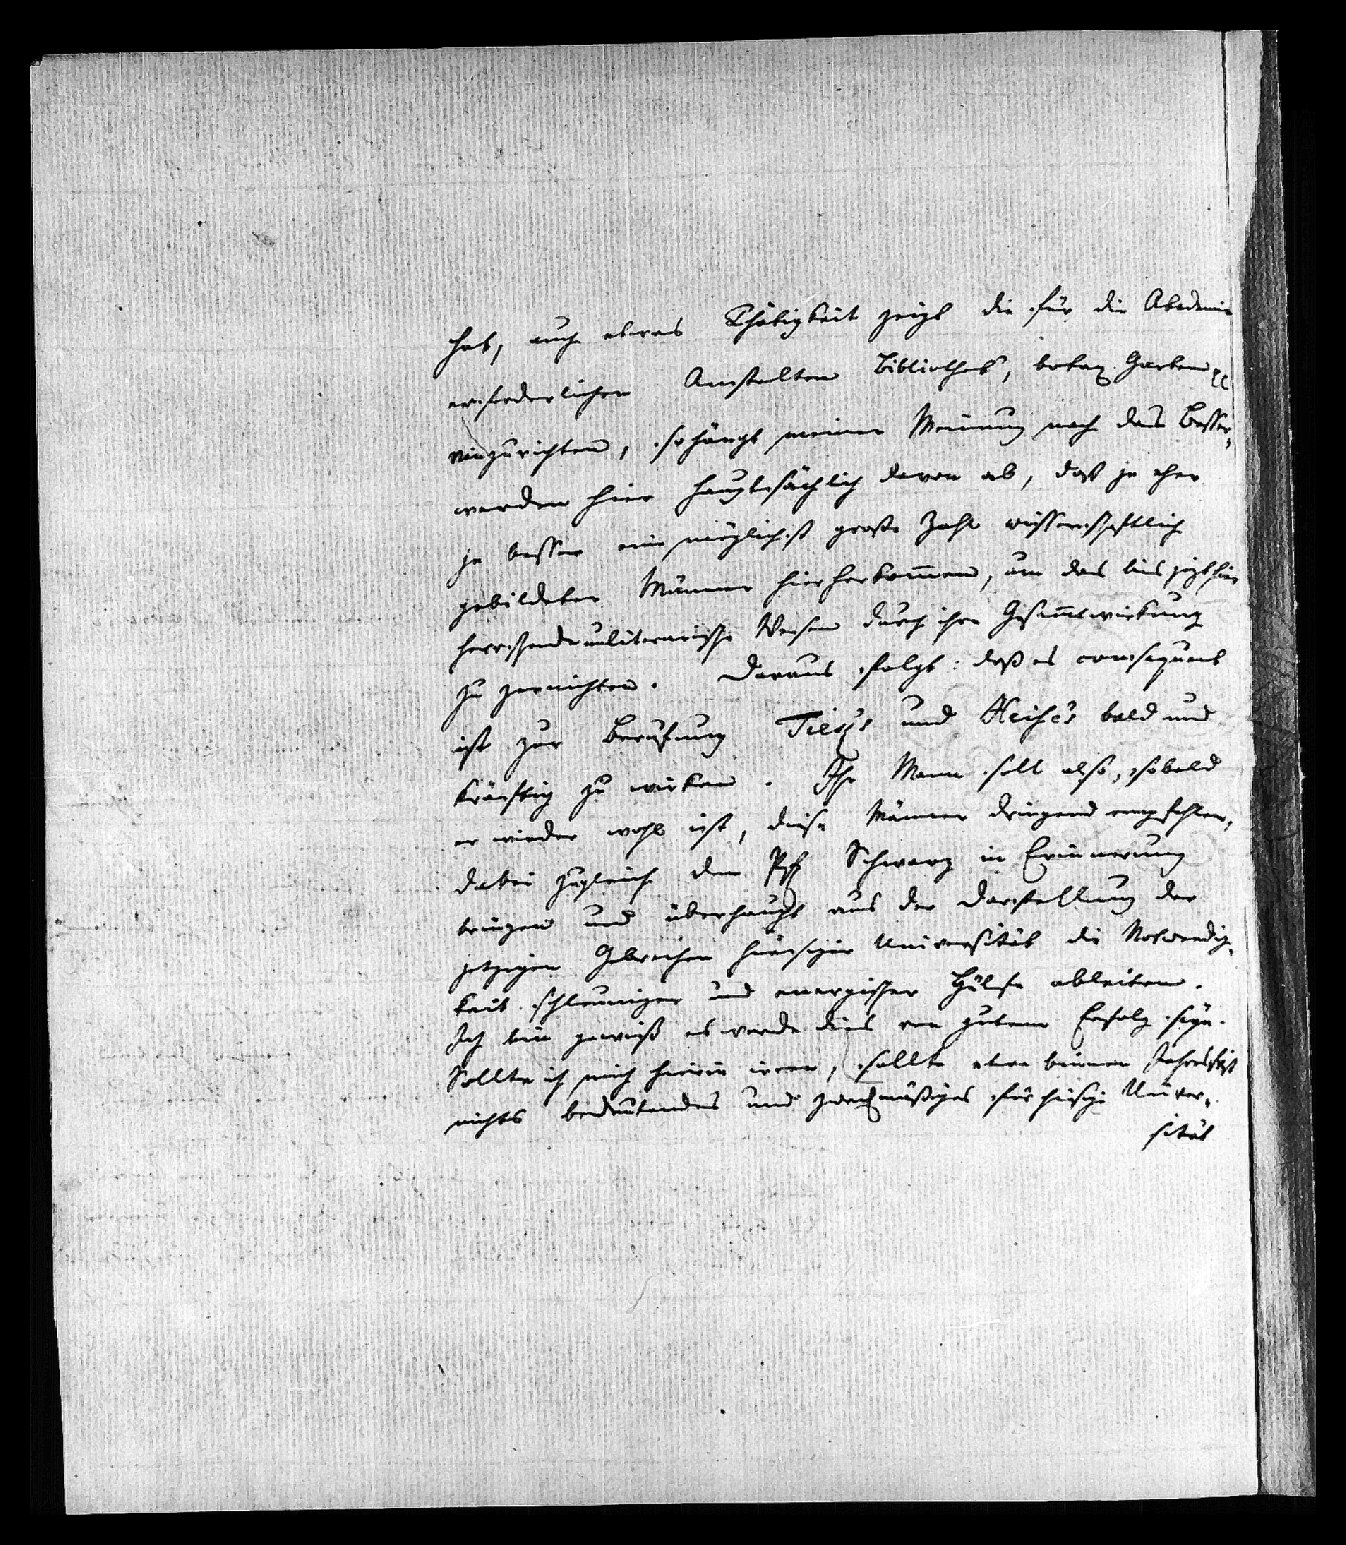 hat, auch etwas Thätigkeit zeigt die für die Akademie
erforderlichen Anstalten Bibliothek, botan. Garten pp
einzurichten, so hängt meiner Meinung nach das Besser-
werden hier hauptsächlich davon ab, daß je eher
je besser eine möglichst große Zahl wissenschaftlich
gebildeter Männer hierherkommen, um das bis jezt hier
herrschende unliterarische Wesen durch ihre Gesammtwirkung
zu zernichten. Daraus folgt: daß es consequent
ist zur Berufung Tiecks und Heise's bald und
kräftig zu wirken. Ihr Mann soll also, sobald
er wieder wohl ist, diese Männer dringend empfehlen,
dabei zugleich den Pf Schwarz in Erinnerung
bringen und überhaupt aus der Darstellung der
jetzigen Gebrechen hiesiger Universität die Nothwendig-
keit schleuniger und energischer Hülfe ableiten.
Ich bin gewiß es werde dies von gutem Erfolg seyn.
Sollte ich mich hierin irren, sollte etwa binnen Jahresfrist
nichts bedeutendes und zweckmäßiges für hiesige Univer-
sität